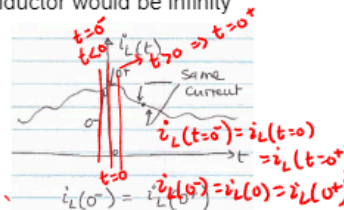 ductor would be infinity
t=0⁻
t<0
i_L(t)
t>0 ⇒ t=0⁺
0⁺
same
current
0⁻
i_L(t=0⁻)=i_L(t=0)
t
=i_L(t=0⁺
t=0
i_L(0⁻) =
i_L(0⁻)=i_L(0)=i_L(0⁺)